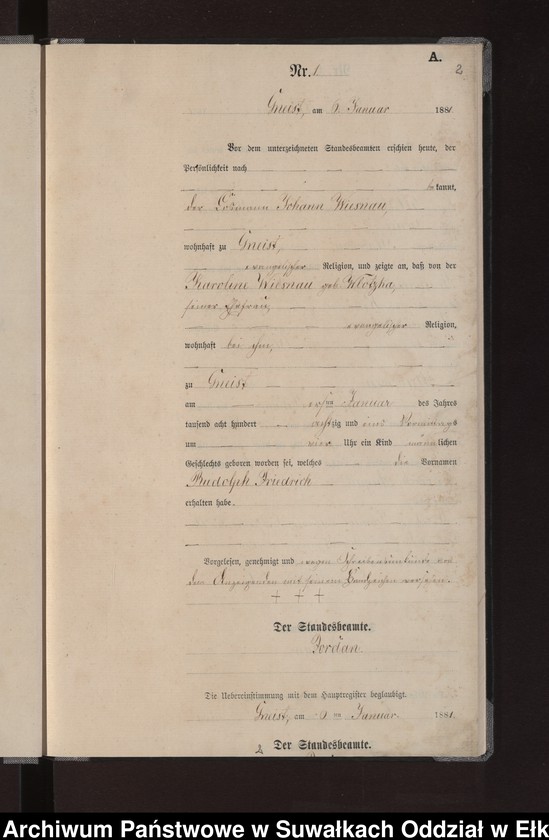 A.
Nr. 1
2
Gneist, am 6 Januar 1881.
Vor dem unterzeichneten Standesbeamten erschien heute, der
Persönlichkeit nach
bekannt,
der Losmann Johann Wiesnau,
wohnhaft zu Gneist,
evangelischer Religion, und zeigte an, daß von der
Karoline Wiesnau geb Klotzka,
seiner Ehefrau,
evangelischer Religion,
wohnhaft bei ihm,
zu Gneist
am ersten Januar des Jahres
tausend acht hundert achtzig und eins Vormittags
um vier Uhr ein Kind männlichen
Geschlechts geboren worden sei, welches die Vornamen
Rudolph Friedrich
erhalten habe.
Vorgelesen, genehmigt und wegen Schreibensunkunde von
dem Anzeigenden mit seinem Handzeichen versehen.
+ + +
Der Standesbeamte.
Jordan
Die Uebereinstimmung mit dem Hauptregister beglaubigt.
Gneist, am 6 ten Januar 1881.
Der Standesbeamte.
2
Archiwum Państwowe w Suwałkach Oddział w Ełk